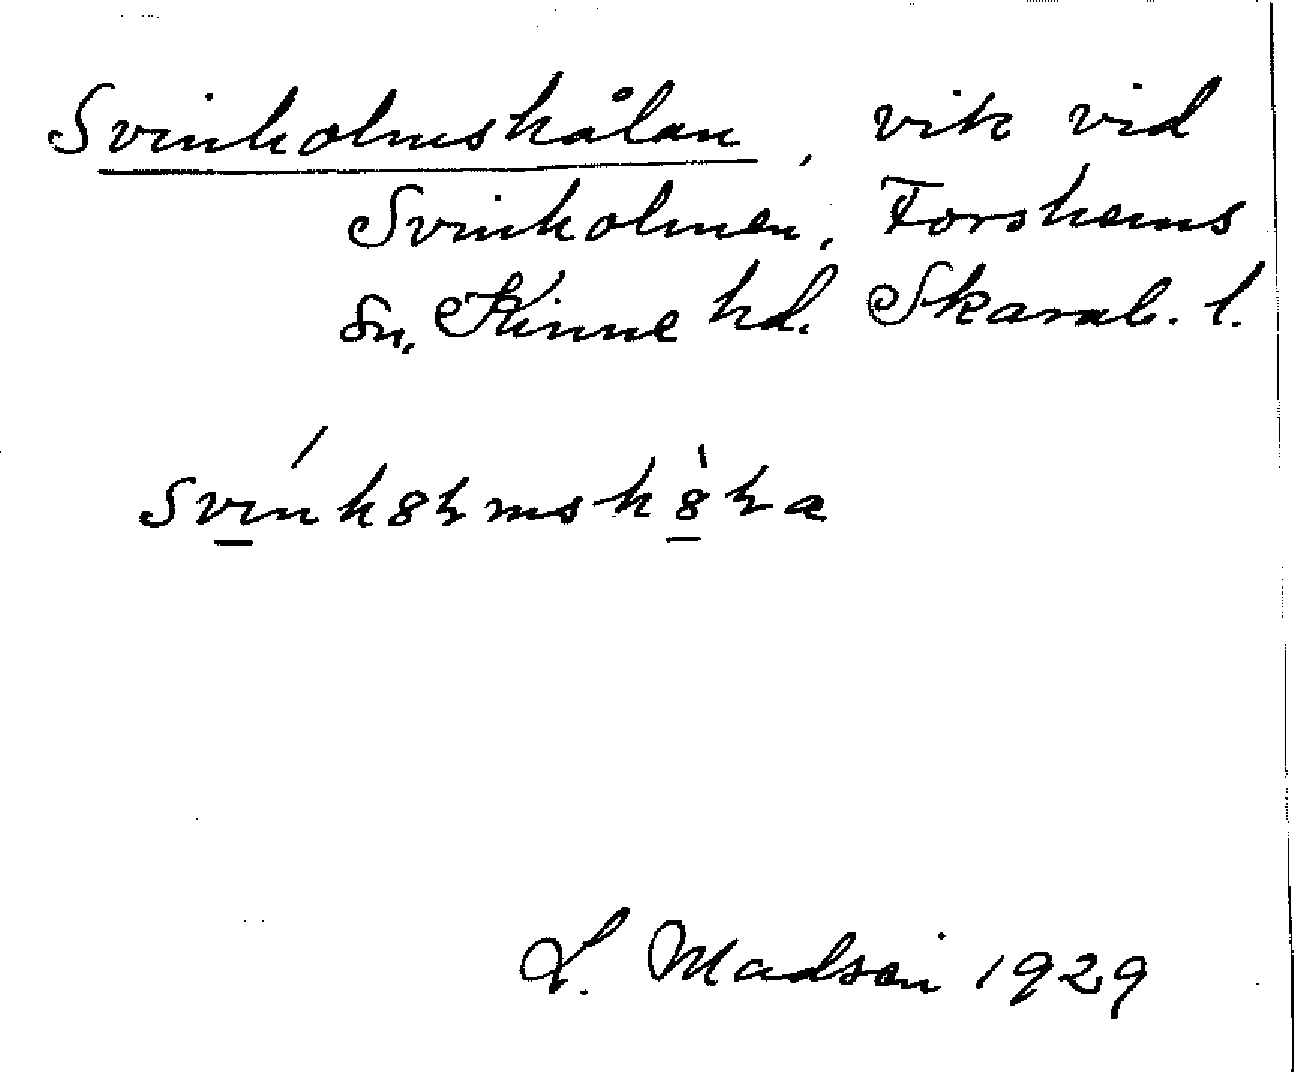 Svinholmshålan, vik vid
Svinholmen, Forshems
sn, Kinne hd. Skarab. l.
L. Madsén 1929